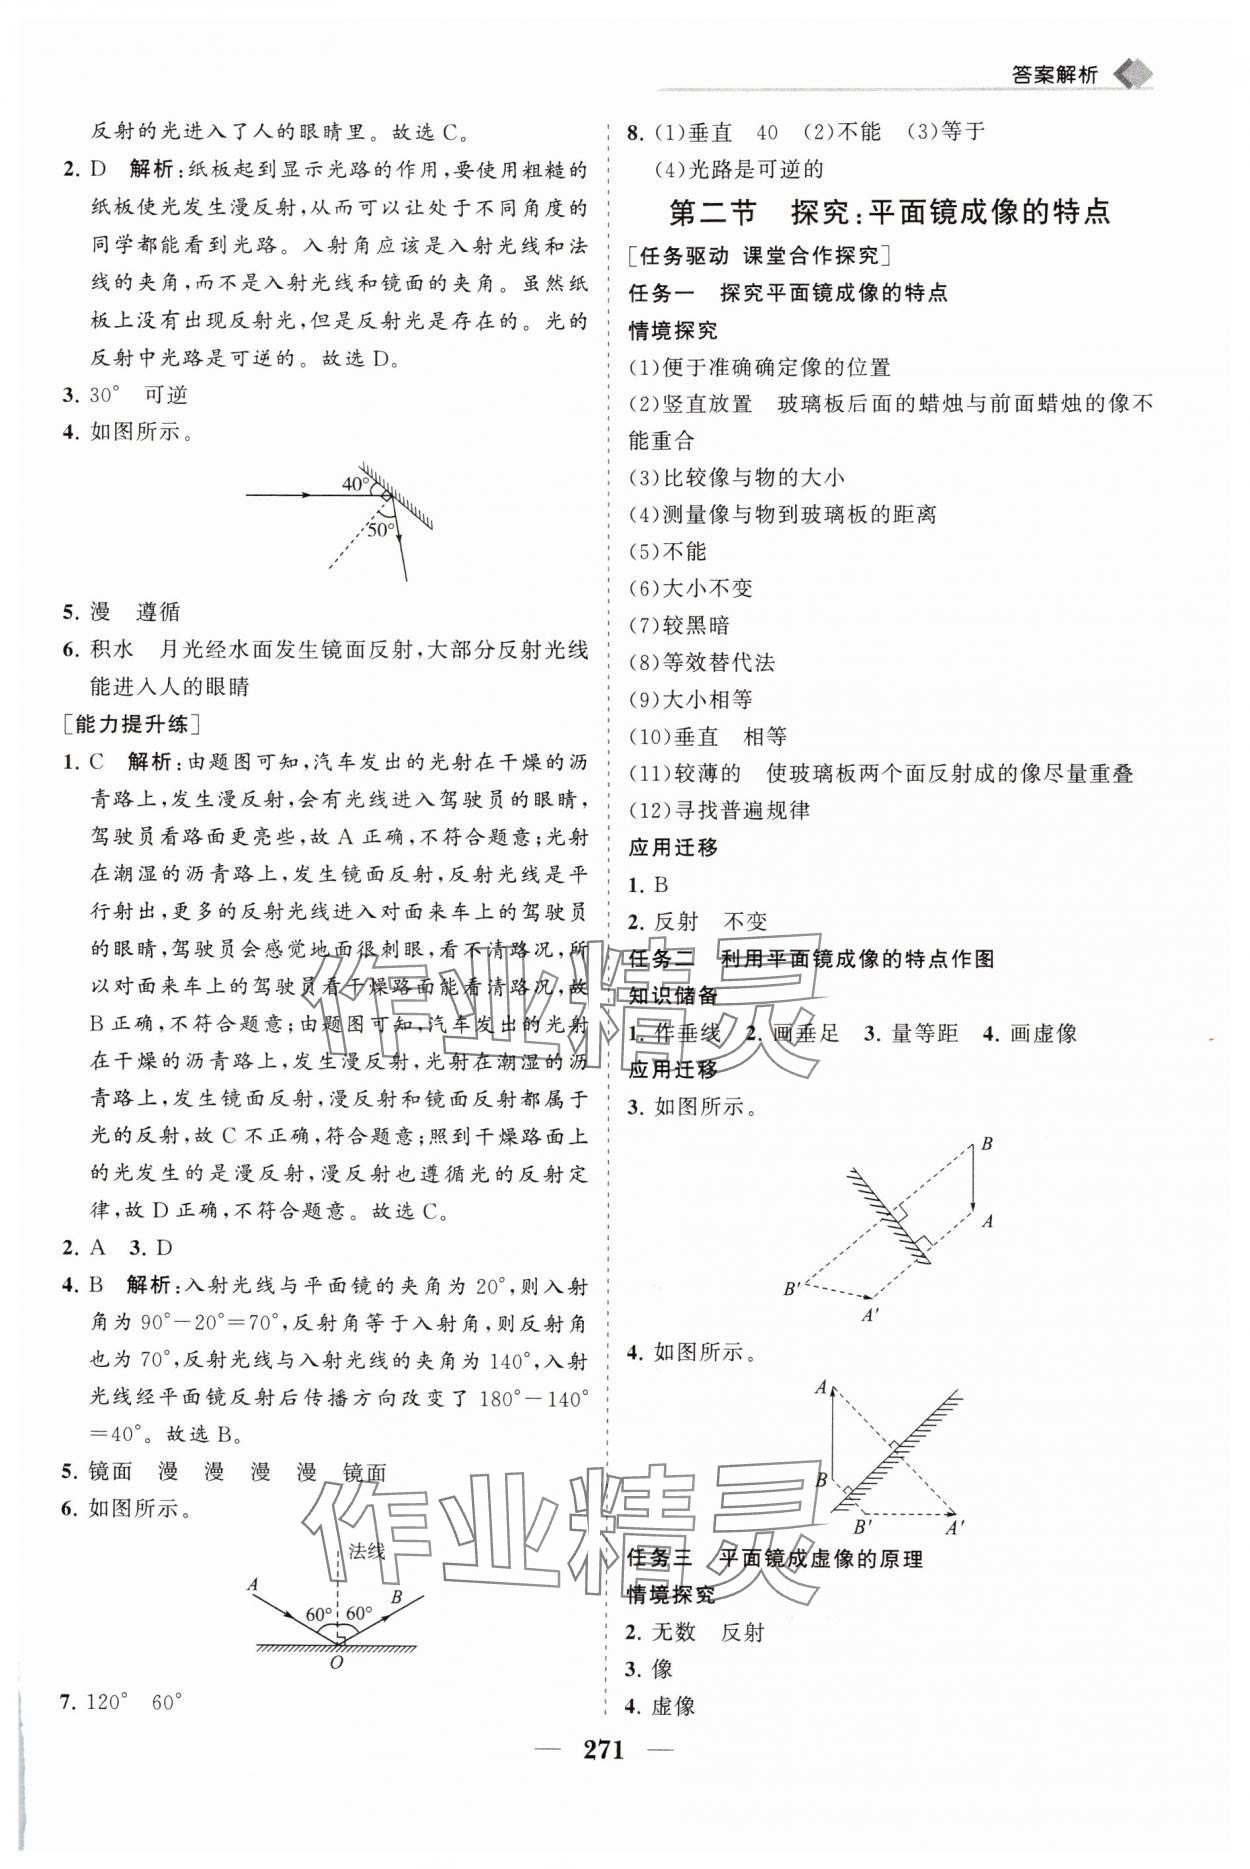 答案解析
反射的光进入了人的眼睛里。故选C。
2. D 解析:纸板起到显示光路的作用,要使用粗糙的
纸板使光发生漫反射,从而可以让处于不同角度的
同学都能看到光路。入射角应该是入射光线和法
线的夹角,而不是入射光线和镜面的夹角。虽然纸
板上没有出现反射光,但是反射光是存在的。光的
反射中光路是可逆的。故选D。
3. 30° 可逆
4. 如图所示。
40°
50°
5. 漫 遵循
6. 积水 月光经水面发生镜面反射,大部分反射光线
能进入人的眼睛
[能力提升练]
1. C 解析:由题图可知,汽车发出的光射在干燥的沥
青路上,发生漫反射,会有光线进入驾驶员的眼睛,
驾驶员看路面更亮些,故A正确,不符合题意;光射
在潮湿的沥青路上,发生镜面反射,反射光线是平
行射出,更多的反射光线进入对面来车上的驾驶员
的眼睛,驾驶员会感觉地面很刺眼,看不清路况,所
以对面来车上的驾驶员看干燥路面能看清路况,故
B正确,不符合题意;由题图可知,汽车发出的光射
在干燥的沥青路上,发生漫反射,光射在潮湿的沥
青路上,发生镜面反射,漫反射和镜面反射都属于
光的反射,故C不正确,符合题意;照到干燥路面上
的光发生的是漫反射,漫反射也遵循光的反射定
律,故D正确,不符合题意。故选C。
2. A 3. D
4. B 解析:入射光线与平面镜的夹角为20°,则入射
角为90°-20°=70°,反射角等于入射角,则反射角
也为70°,反射光线与入射光线的夹角为140°,入射
光线经平面镜反射后传播方向改变了180°-140°
=40°。故选B。
5. 镜面 漫 漫 漫 漫 镜面
6. 如图所示。
法线
A
B
60° 60°
O
7. 120° 60°
8. (1)垂直 40 (2)不能 (3)等于
(4)光路是可逆的
第二节 探究:平面镜成像的特点
[任务驱动 课堂合作探究]
任务一 探究平面镜成像的特点
情境探究
(1)便于准确确定像的位置
(2)竖直放置 玻璃板后面的蜡烛与前面蜡烛的像不
能重合
(3)比较像与物的大小
(4)测量像与物到玻璃板的距离
(5)不能
(6)大小不变
(7)较黑暗
(8)等效替代法
(9)大小相等
(10)垂直 相等
(11)较薄的 使玻璃板两个面反射成的像尽量重叠
(12)寻找普遍规律
应用迁移
1. B
2. 反射 不变
任务二 利用平面镜成像的特点作图
知识储备
1. 作垂线 2. 画垂足 3. 量等距 4. 画虚像
应用迁移
3. 如图所示。
B
A
B'
A'
4. 如图所示。
A
B
B'
A'
任务三 平面镜成虚像的原理
情境探究
2. 无数 反射
3. 像
4. 虚像
— 271 —
作业精灵
作业精灵